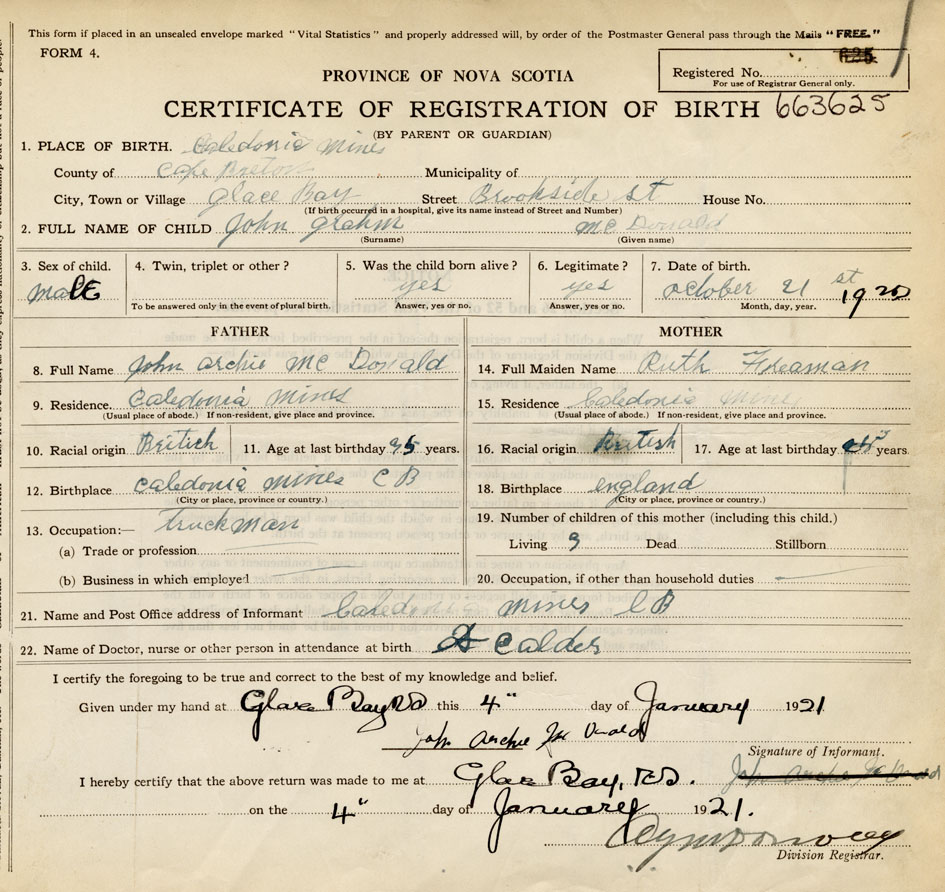 This form if placed in an unsealed envelope marked "Vital Statistics" and properly addressed will, by order of the Postmaster General pass through the Mails "FREE."
FORM 4.
PROVINCE OF NOVA SCOTIA
Registered No.
For use of Registrar General only.
CERTIFICATE OF REGISTRATION OF BIRTH 663625
(BY PARENT OR GUARDIAN)
1. PLACE OF BIRTH. Caledonia mines
County of Cape Breton Municipality of
City, Town or Village Glace Bay Street Brookside st House No.
(If birth occurred in a hospital, give its name instead of Street and Number)
2. FULL NAME OF CHILD John grahm mc Donald
(Surname) (Given name)
3. Sex of child. 4. Twin, triplet or other? 5. Was the child born alive? 6. Legitimate? 7. Date of birth.
male yes yes october 21 st 1920
To be answered only in the event of plural birth. Answer, yes or no. Answer, yes or no. Month, day, year.
FATHER MOTHER
8. Full Name John archie mc Donald 14. Full Maiden Name Ruth Freaman
9. Residence. Caledonia mines 15. Residence Caledonia mines
(Usual place of abode.) If non-resident, give place and province. (Usual place of abode.) If non-resident, give place and province.
10. Racial origin British 11. Age at last birthday years. 16. Racial origin British 17. Age at last birthday years.
12. Birthplace caledonia mines C B 18. Birthplace england
(City or place, province or country.) (City or place, province or country.)
13. Occupation:— truckman 19. Number of children of this mother (including this child.)
(a) Trade or profession Living 9 Dead Stillborn
(b) Business in which employed 20. Occupation, if other than household duties
21. Name and Post Office address of Informant Caledonia mines C B
22. Name of Doctor, nurse or other person in attendance at birth Calder
I certify the foregoing to be true and correct to the best of my knowledge and belief.
Given under my hand at Glace Bay NS this 4" day of January 1921
John Archie Mc Donald
Signature of Informant.
I hereby certify that the above return was made to me at Glace Bay, N.S.
on the 4" day of January 1921.
Division Registrar.